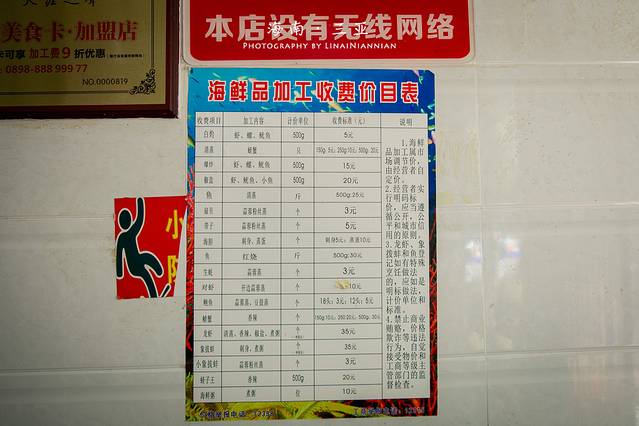 美食卡·加盟店
加工费9折优惠
0898-888 999 77
NO.0000819
本店没有无线网络
海南 三亚
PHOTOGRAPHY BY LINAINIANNIAN
小
海鲜品加工收费价目表
收费项目 加工内容 计价单位 收费标准(元) 说明
白灼 虾、螺、鱿鱼 500g 5元
清蒸 螃蟹 只 150g:5元; 250g:10元; 500g:20元
爆炒 虾、螺、鱿鱼 500g 15元
椒盐 虾、鱿鱼、小鱼 500g 20元
鱼 清蒸 斤 500g:25元
扇贝 蒜蓉粉丝蒸 个 3元
带子 蒜蓉粉丝蒸 个 5元
海胆 刺身、蒸蛋 个 刺身5元; 蒸蛋10元
鱼 红烧 斤 500g:30元
生蚝 蒜蓉蒸 个 3元
对虾 开边蒜蓉蒸 个 10元
鲍鱼 蒜蓉蒸、豆豉蒸 个 18头:3元; 12头:5元
螃蟹 香辣 个 150g:10元; 250:20元; 500g:30元
龙虾 清蒸、香辣、椒盐、煮粥 个 35元
象拔蚌 刺身、煮粥 个 35元
小象拔蚌 蒜蓉粉丝蒸 个 3元
蛏子王 香辣 500g 20元
海鲜粥 煮粥 位 10元
1.海鲜
品加工属市
场调节价,
由经营者自
定价。
2.经营者实
行明码标
价,应当遵
循公开,公
平和城市信
用的原则。
3.龙虾、象
拔蚌和鱼登
记如有特殊
烹饪做法
的,应如是
明标做法,
计价单位和
标准。
4.禁止商业
贿赂,价格
欺诈等违法
行为,自觉
接受物价和
工商等级主
管部门的监
督检查。
价格举报电话: 12358
工商举报电话: 12315